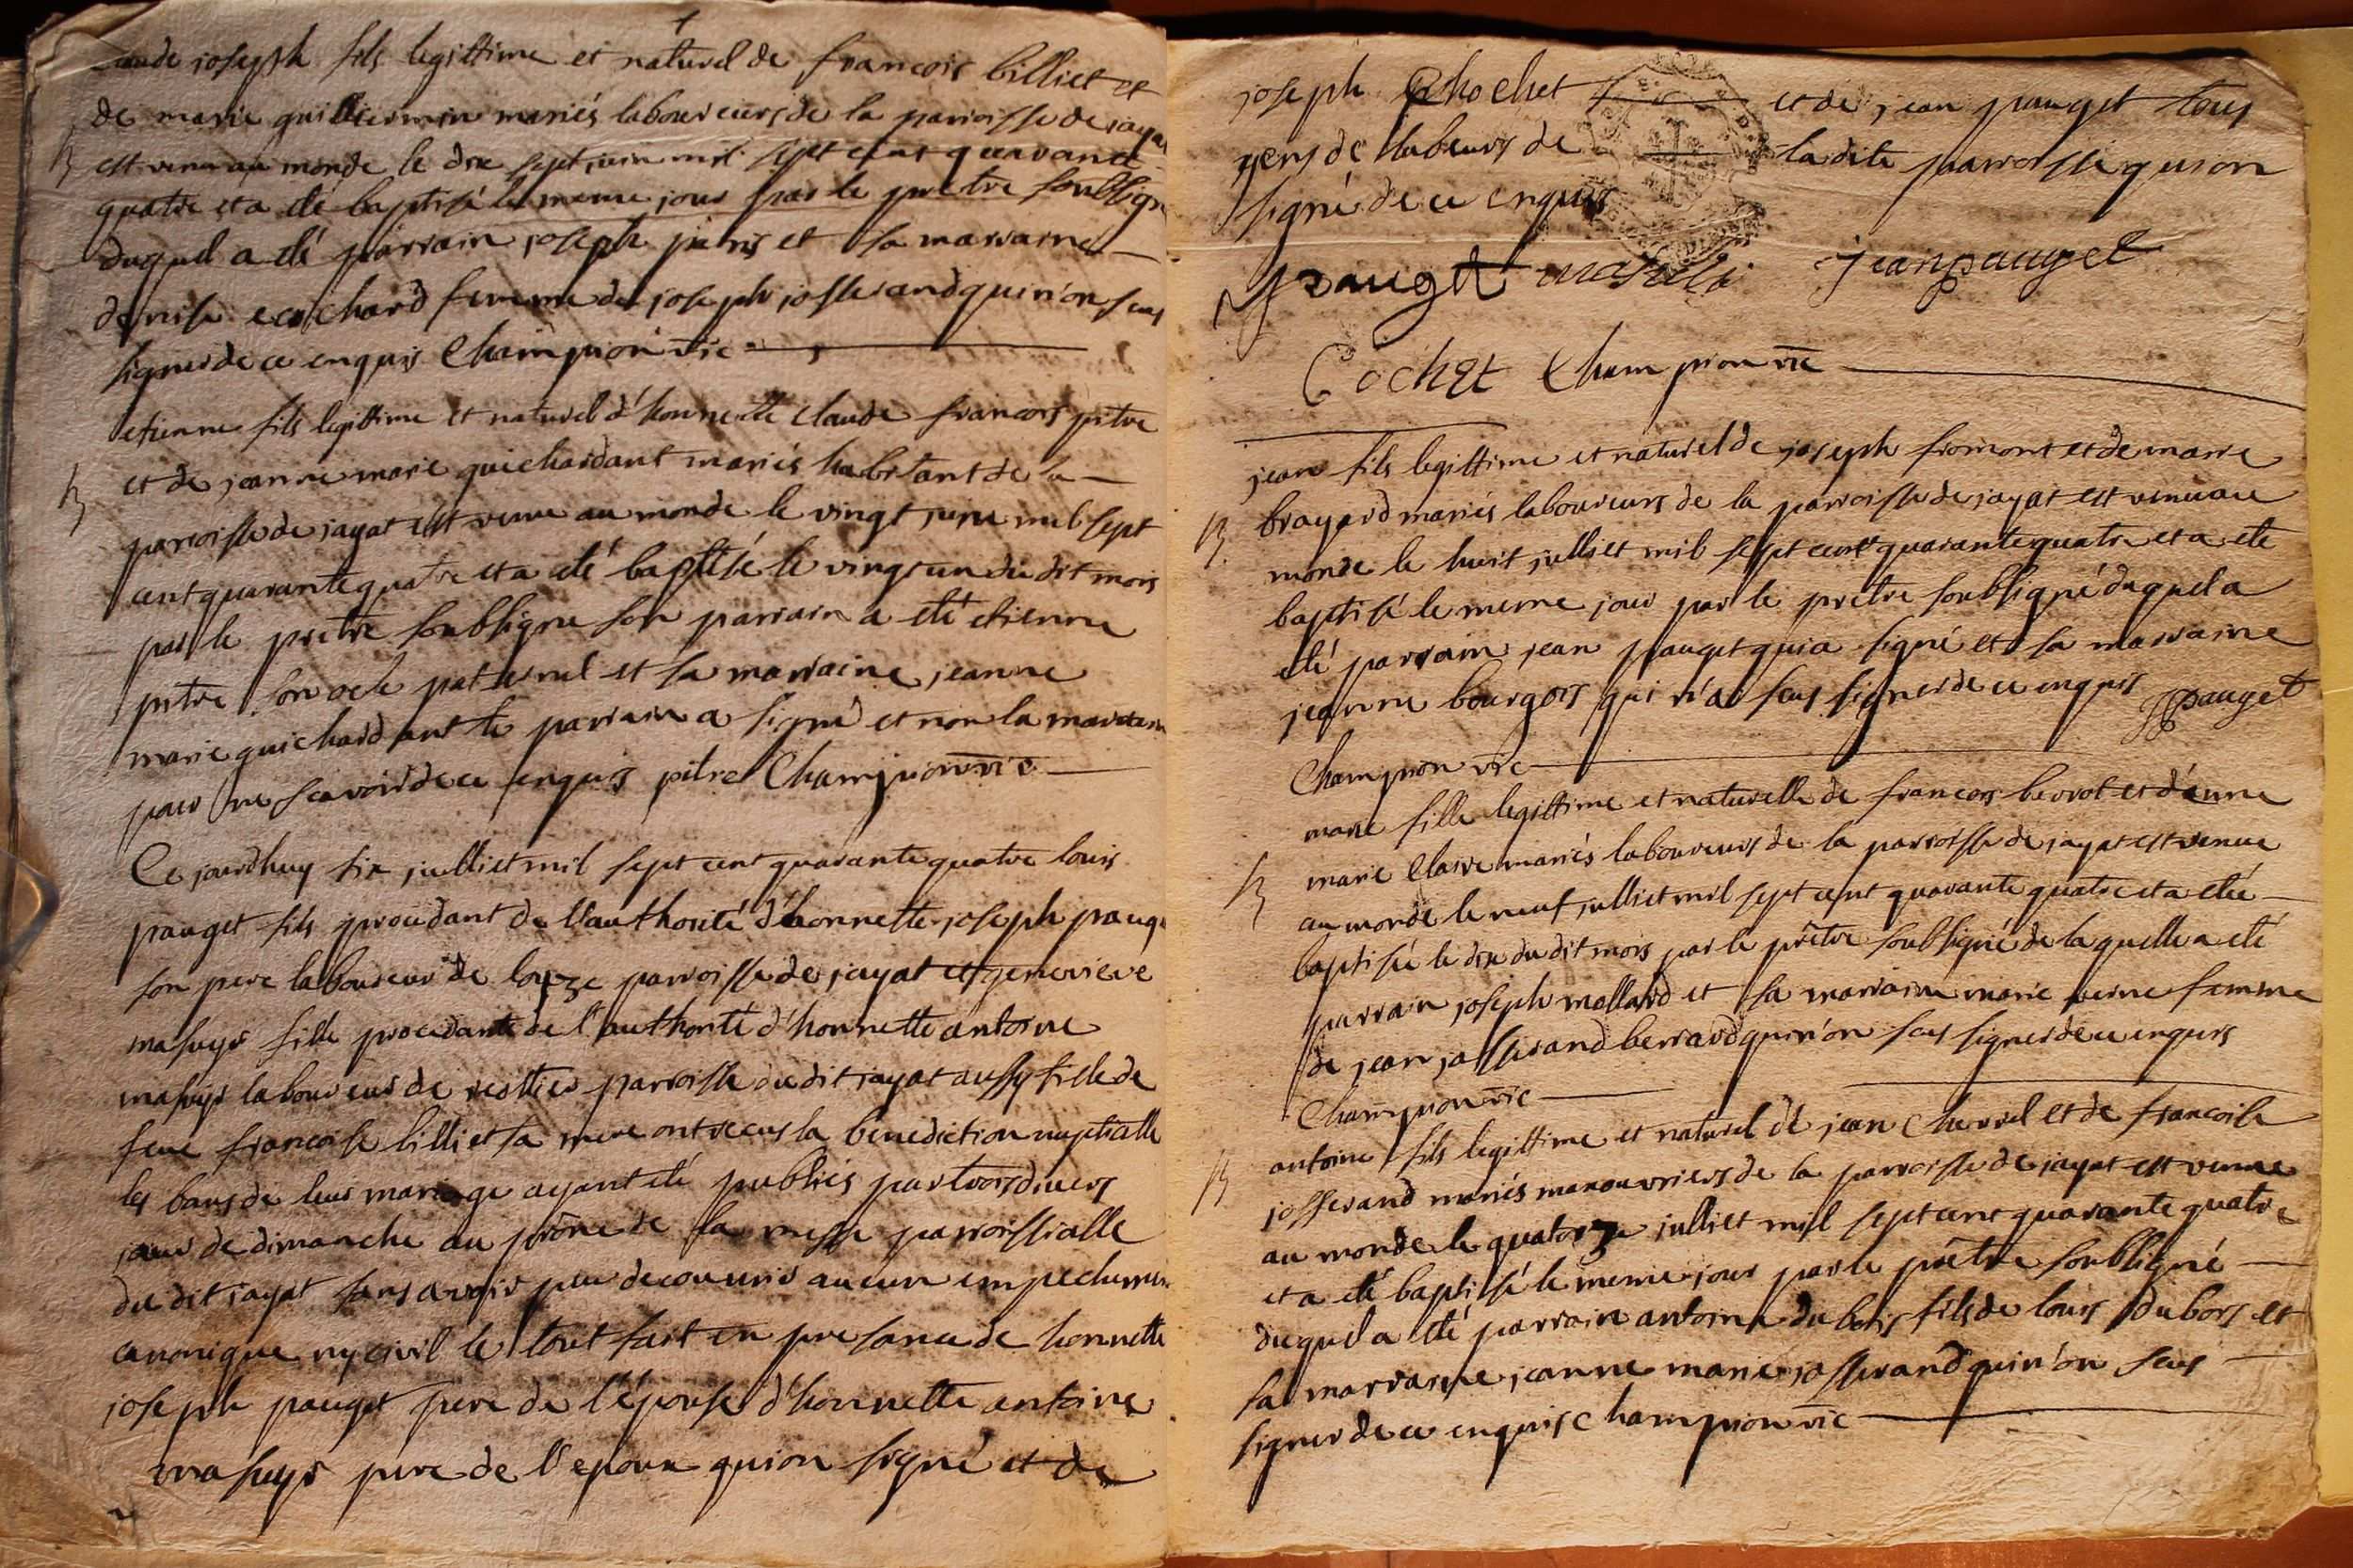 Claude joseph fils legittime et naturel de francois billiet et
de marie guilliermin mariés laboureurs de la parroisse de jayat
est venu au monde le dix sept juin mil sept cent quarante
quatre et a été baptisé le meme jour par le prêtre soubsigné
duquel a été parrain joseph et sa marraine
denise ecochard femme de joseph josserand qui n'on scus
signer de ce enquis Champion vic
etienne fils legittime et naturel d'honnette claude francois pitre
et de jeanne marie guichardant mariés habitant de la
parroisse de jayat est venu au monde le vingt juin mil sept
cent quarante quatre et a été baptisé le vingt un du dit mois
par le prêtre soubsigne son parrain a été etienne
pitre son oncle paternel et sa marraine jeanne
marie guichardant le parrain a signé et non la marraine
pour ne scavoir de ce enquis pitre Champion vic
Ce jourdhuy six julliet mil sept cent quarante quatre louis
pauget fils procedant de l'authorité d'honnette joseph pauget
son pere laboureur de parroisse de jayat et genevieve
masuyr fille procedante de l'authorité d'honnette antoine
masuyr laboureur de parroisse du dit jayat aussy fille de
feue francoise billiet sa mere ont recus la benediction nuptialle
les bans de leur mariage ayant été publiés par trois divers
jours de dimanche au prône de la messe parroissialle
du dit jayat sans avoir peu decouvrir aucun empechement
canonique ny civil le tout fait en presance de honnette
joseph pauget pere de l'épouse d'honnette antoine
masuyr pere de l'epoux qui on signé et de
joseph Chochet et de jean pauget tous
gens de labeurs de la dite parroisse qui on
signé de ce enquis
pauget jean pauget
Cochet Champion vic
jean fils legittime et naturel de joseph fromont et de marie
brayard mariés laboureurs de la parroisse de jayat est venu au
monde le huit julliet mil sept cent quarante quatre et a été
baptisé le meme jour par le prêtre soubsigné duquel a
été parrain jean pauget qui a signé et sa marraine
jeanne bourgois qui n'a scus signer de ce enquis pauget
Champion vic
marie fille legittime et naturelle de francois berrot et d'anne
marie Claire mariés laboureurs de la parroisse de jayat est venue
au monde le neuf julliet mil sept cent quarante quatre et a été
baptisée le dix du dit mois par le prêtre soubsigné de laquelle a été
parrain joseph mollard et sa marraine marie femme
de jean josserand berrard qui n'on scus signer de ce enquis
Champion vic
antoine fils legittime et naturel de jean Chevrel et de francoise
josserand mariés manouvriers de la parroisse de jayat est venu
au monde le quatorze julliet mil sept cent quarante quatre
et a été baptisé le meme jour par le prêtre soubsigné
duquel a été parrain antoine du bois fils de louis du bois et
sa marraine jeanne marie josserand qui n'on scus
signer de ce enquis Champion vic